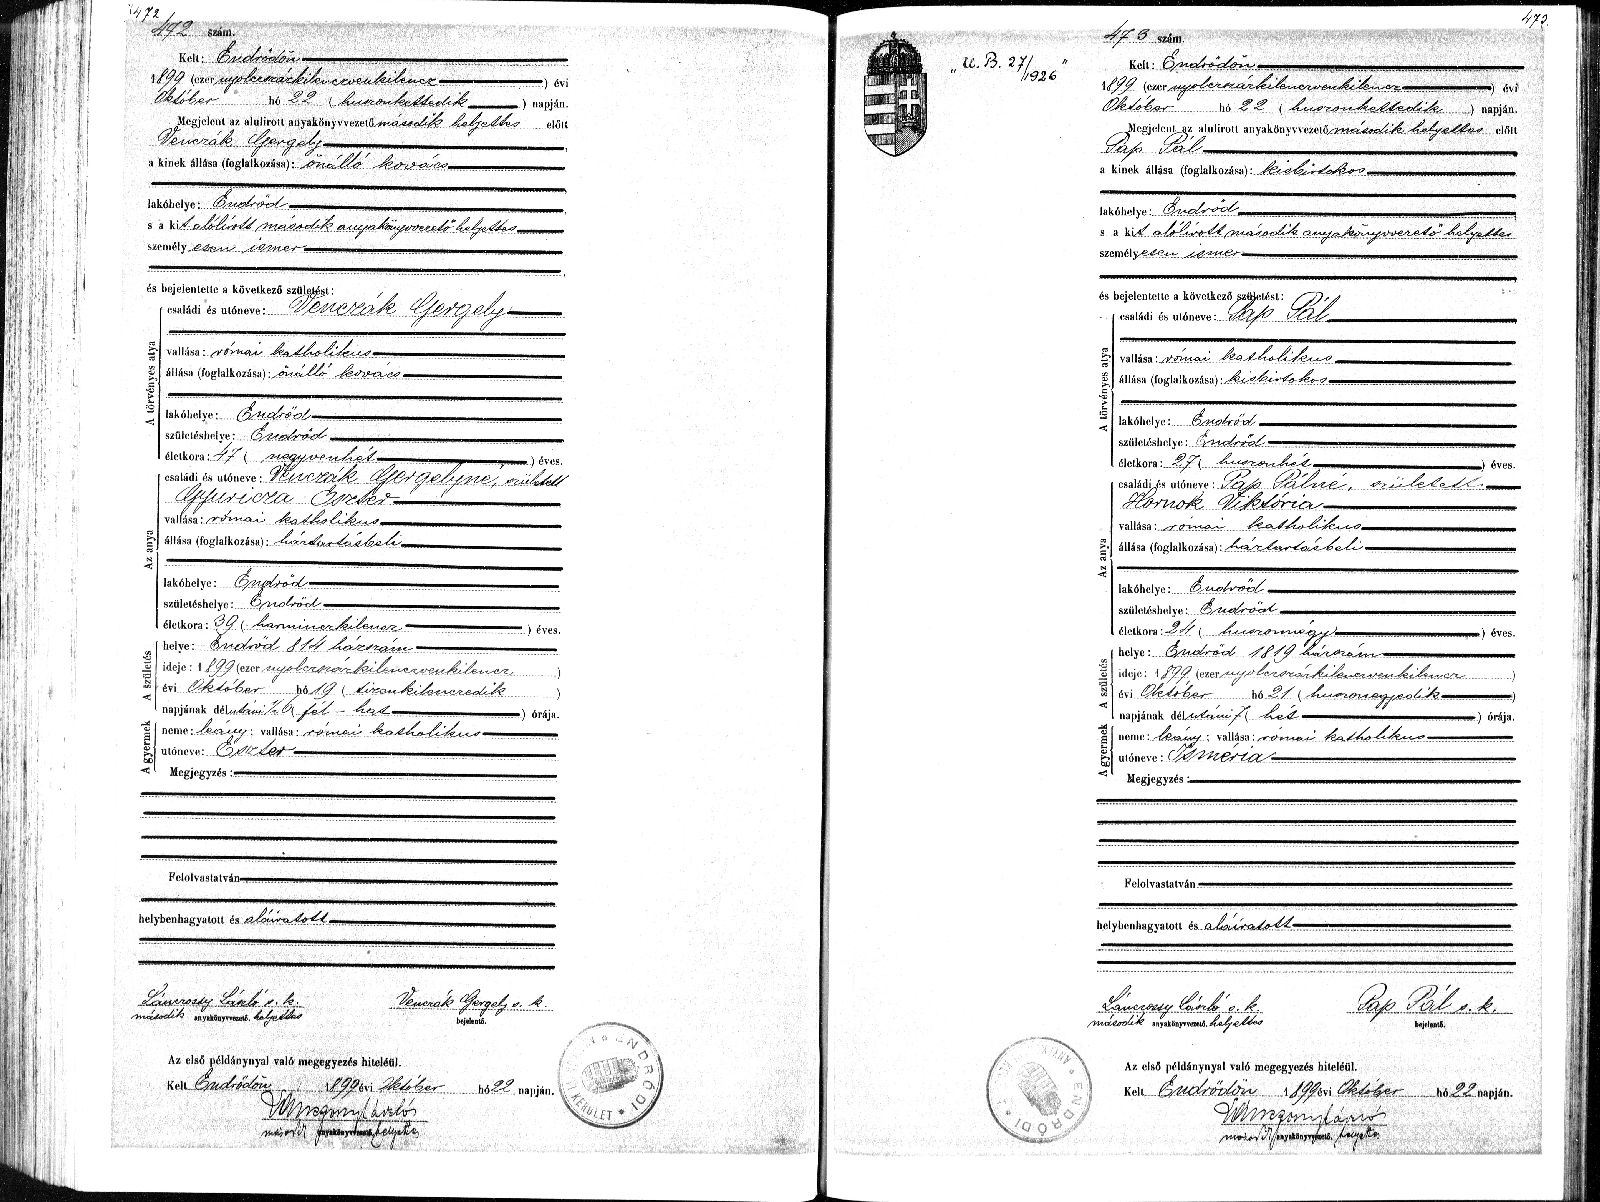 472
472 szám.
Kelt: Endrődön
1899 (ezer nyolczszázkilenczvenkilencz ) évi
Október hó 22 (huszonkettedik ) napján.
Megjelent az alulirott anyakönyvvezető második helyettes előtt
Venczák Gergely
a kinek állása (foglalkozása): önálló kovács
lakóhelye: Endrőd
s a kit alólirott második anyakönyvvezető helyettes
személyesen ismer
és bejelentette a következő születést:
A törvényes atya
családi és utóneve: Venczák Gergely
vallása: római katholikus
állása (foglalkozása): önálló kovács
lakóhelye: Endrőd
születéshelye: Endrőd
életkora: 47 ( negyvenhét ) éves.
Az anya
családi és utóneve: Venczák Gergelyné, született
Gyuricza Eszter
vallása: római katholikus
állása (foglalkozása): háztartásbeli
lakóhelye: Endrőd
születéshelye: Endrőd
életkora: 39 ( harminczkilencz ) éves.
A születés
helye: Endrőd 814 házszám
ideje: 1899 (ezer nyolczszázkilenczvenkilencz )
évi Október hó 19 ( tizenkilenczedik )
napjának délutáni ½ 6 ( fél - hat ) órája.
A gyermek
neme: leány; vallása: római katholikus
utóneve: Eszter
Megjegyzés:
Felolvastatván
helybenhagyatott és aláiratott
Lánczossy László s. k. Venczák Gergely s. k.
második anyakönyvvezető. helyettes bejelentő.
Az első példánynyal való megegyezés hiteléül.
Kelt Endrődön 1899 évi Október hó 22 napján.
anyakönyvvezető. helyettes
ENDRŐDI
KERÜLET
473.
473 szám.
"U. B. 27/1926"
Kelt: Endrődön
1899 (ezer nyolczszázkilenczvenkilencz ) évi
Október hó 22 ( huszonkettedik ) napján.
Megjelent az alulirott anyakönyvvezető második helyettes előtt
Pap Pál
a kinek állása (foglalkozása): kisbirtokos
lakóhelye: Endrőd
s a kit alólirott második anyakönyvvezető helyettes
személyesen ismer
és bejelentette a következő születést:
A törvényes atya
családi és utóneve: Pap Pál
vallása: római katholikus
állása (foglalkozása): kisbirtokos
lakóhelye: Endrőd
születéshelye: Endrőd
életkora: 27 ( huszonhét ) éves.
Az anya
családi és utóneve: Pap Pálné, született
Hornok Viktória
vallása: római katholikus
állása (foglalkozása): háztartásbeli
lakóhelye: Endrőd
születéshelye: Endrőd
életkora: 24 ( huszonnégy ) éves.
A születés
helye: Endrőd 1819 házszám
ideje: 1899 (ezer nyolczszázkilenczvenkilencz )
évi Október hó 21 ( huszonegyedik )
napjának délutáni 7 ( hét ) órája.
A gyermek
neme: leány; vallása: római katholikus
utóneve: Isméria
Megjegyzés:
Felolvastatván
helybenhagyatott és aláiratott
Lánczossy László s. k. Pap Pál s. k.
második anyakönyvvezető. helyettes bejelentő.
Az első példánynyal való megegyezés hiteléül.
Kelt Endrődön 1899 évi Október hó 22 napján.
anyakönyvvezető. helyettes
ENDRŐDI